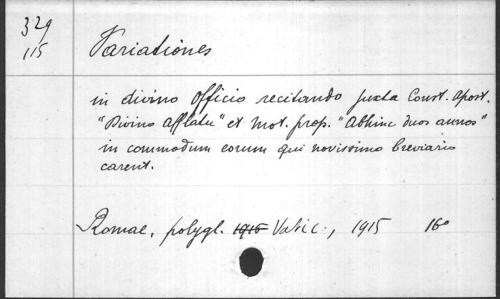 329
115
Variationes
in divino Officio recitando juxta Const. Apost.
"Divino Afflatu" et Mot. prop. "Abhinc duos annos"
in commodum eorum qui novissimo breviario
carent.
Romae, polygl. 1915 Vatic., 1915 16°